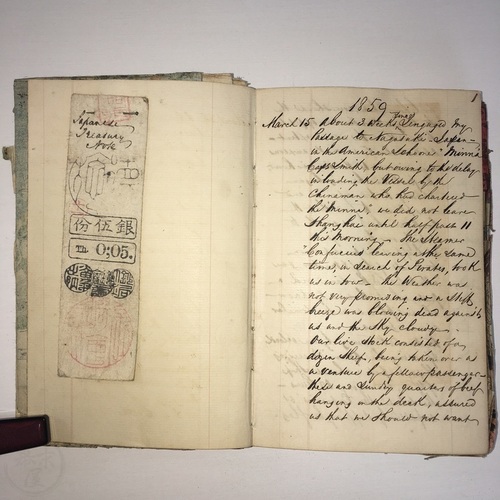 Japanese
Treasury
Note
銀伍份
TM 0:05.
1
1859
March 15 About 3 weeks ago I engaged my
Passage to Nagasaki - Japan -
in the American Schooner "Minna"
Capt Smith, but owing to the delay
in loading the Vessel by the
Chinaman who had chartered
the "Minna", we did not leave
Shanghai until half past 11
this Morning. The Steamer
"Confucius" leaving at the same
time, in search of Pirates, took
us in tow. The Weather was
not very promising and a Stiff
breeze was blowing dead against
us and the Sky cloudy.
Our live Stock consisted of a
dozen Sheep, being taken over as
a venture by a fellow passenger -
these and Sundry quarters of beef
hanging on the deck, assured
us that we should not want